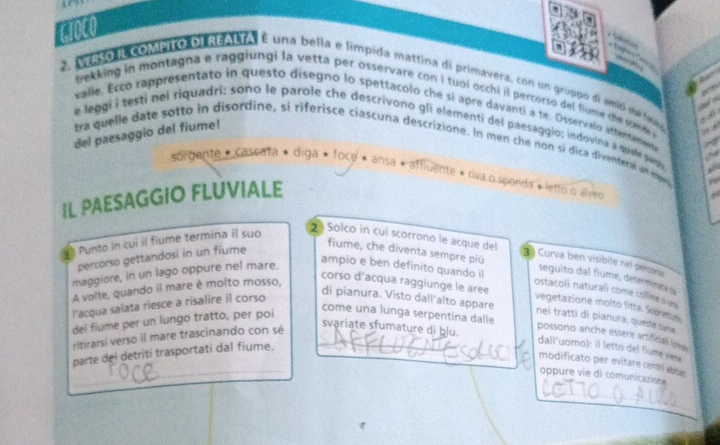 GIOCO
2. VERSO IL COMPITO DI REALTÀ È una bella e limpida mattina di primavera, con un gruppo di amici
trekking in montagna e raggiungi la vetta per osservare con i tuoi occhi il percorso del fiume che scende a
valle. Ecco rappresentato in questo disegno lo spettacolo che si apre davanti a te. Osservalo attentamente
e leggi i testi nei riquadri: sono le parole che descrivono gli elementi del paesaggio; indovina a quale parola,
tra quelle date sotto in disordine, si riferisce ciascuna descrizione. In men che non si dica diventerai un
del paesaggio del fiume!
sorgente • cascata • diga • foce • ansa • affluente • riva o sponda • letto o alveo
IL PAESAGGIO FLUVIALE
1 Punto in cui il fiume termina il suo
percorso gettandosi in un fiume
maggiore, in un lago oppure nel mare.
A volte, quando il mare è molto mosso,
l'acqua salata riesce a risalire il corso
del fiume per un lungo tratto, per poi
ritirarsi verso il mare trascinando con sé
parte dei detriti trasportati dal fiume.
FOCE
2 Solco in cui scorrono le acque del
fiume, che diventa sempre più
ampio e ben definito quando il
corso d'acqua raggiunge le aree
di pianura. Visto dall'alto appare
come una lunga serpentina dalle
svariate sfumature di blu.
AFFLUENTE
3 Curva ben visibile nel percorso
seguito dal fiume, determinata da
ostacoli naturali come colline o una
vegetazione molto fitta. Soprattutto
nei tratti di pianura, queste curve
possono anche essere artificiali
dall'uomo): il letto del fiume viene
modificato per evitare centri abitati
oppure vie di comunicazione.
LETTO O